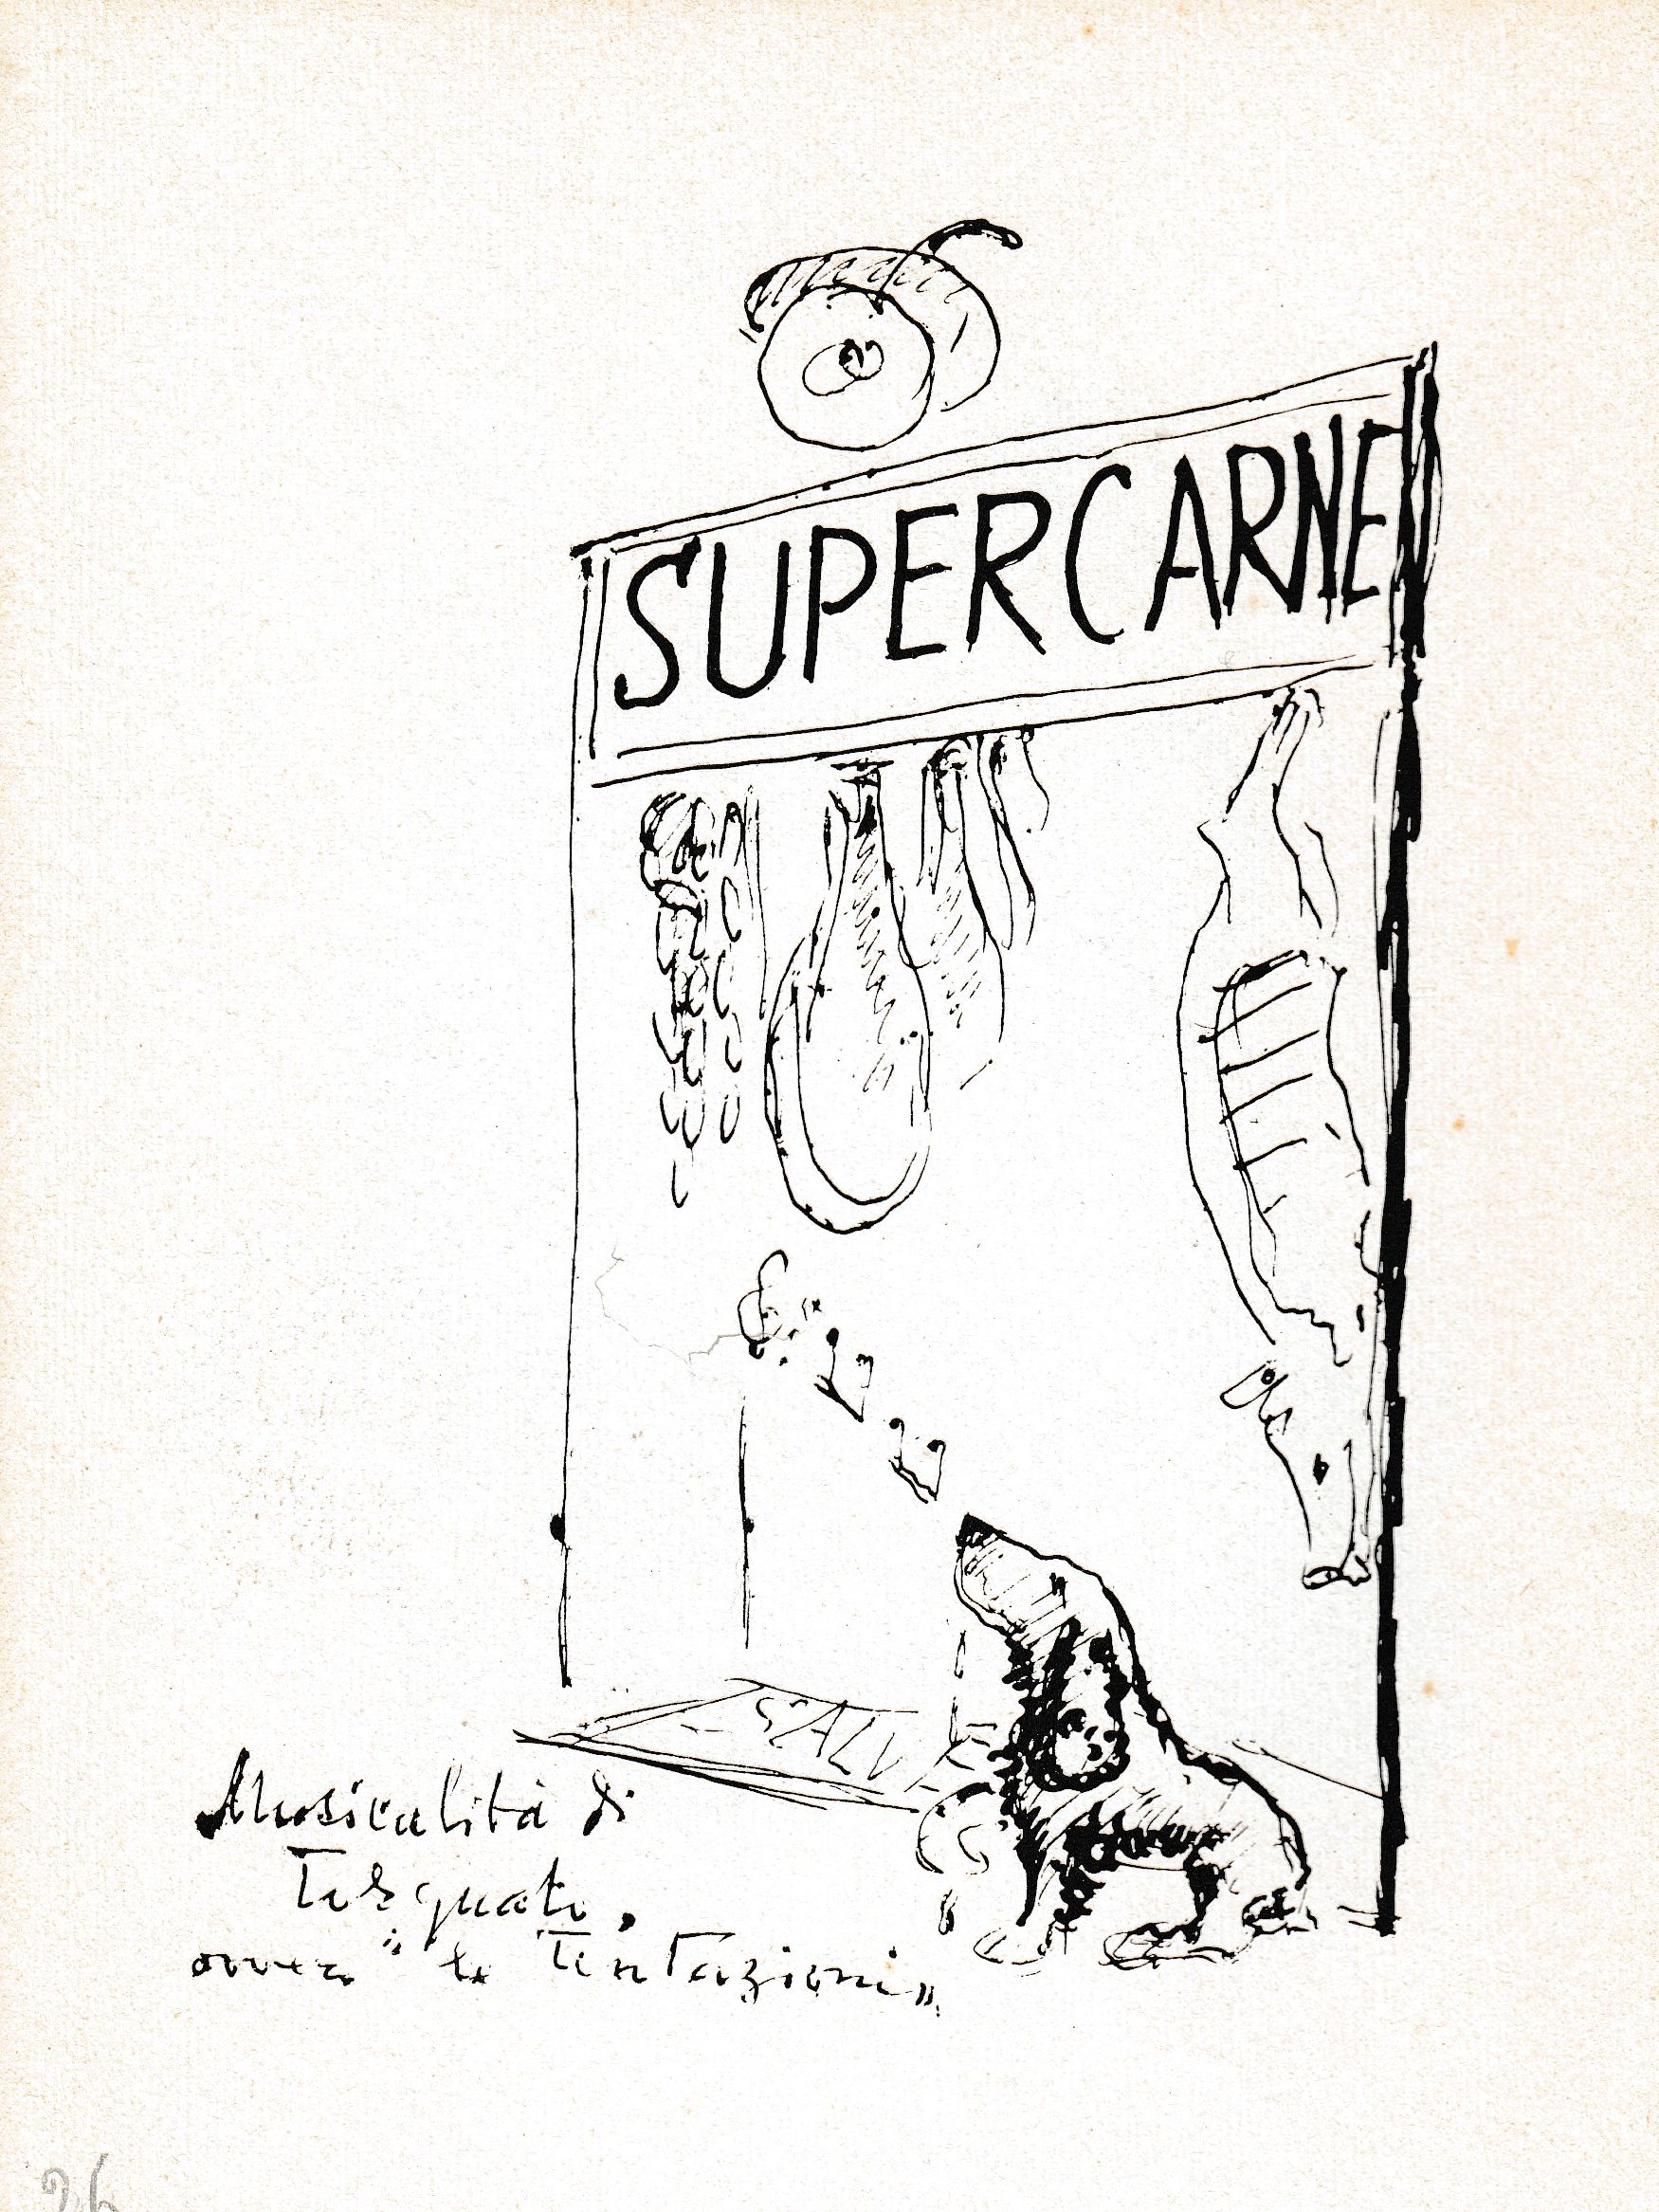 SUPERCARNE
SALVE
Musicalità di
Torquato,
ovvero "le Tentazioni"
26